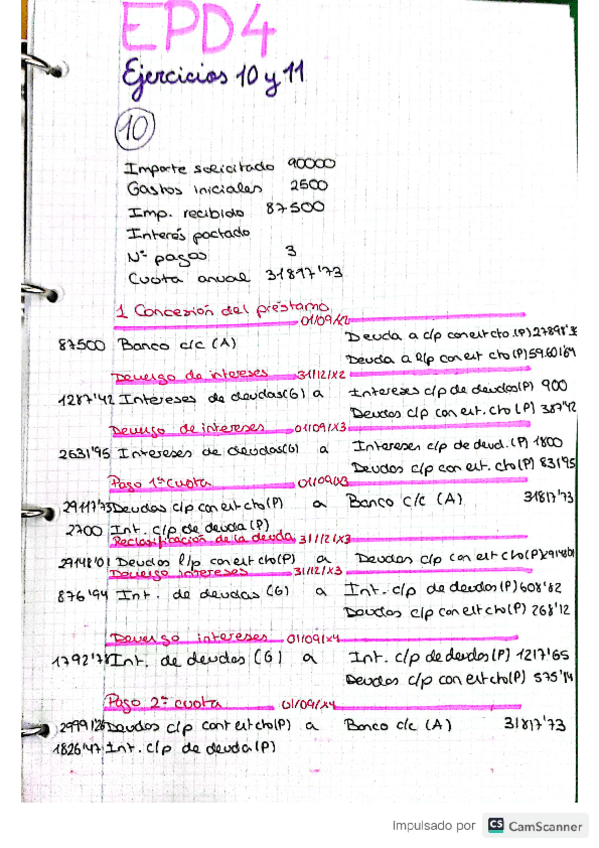 EPD4
Ejercicios 10 y 11
10
Importe solicitado 90000
Gastos iniciales 2500
Imp. recibido 87500
Interés pactado
Nº pagos 3
Cuota anual 31817'73
1 Concesión del préstamo
01/09/X2
87500 Banco c/c (A) Deuda a c/p con ent cto.(P) 27898'
Deuda a l/p con ent cto (P) 59.601'89
Devengo de intereses 31/12/X2
1287'42 Intereses de deudas (G) a Intereses c/p de deudas (P) 900
Deudas c/p con ent. cto (P) 387'42
Devengo de intereses 01/09/X3
2631'95 Intereses de deudas (G) a Intereses c/p de deud. (P) 1800
Deudas c/p con ent. cto (P) 831'95
Pago 1ª cuota 01/09/X3
29117'73 Deudas c/p con ent cto (P) a Banco c/c (A) 31817'73
2700 Int. c/p de deuda (P)
Reclasificación de la deuda 31/12/X3
29148'01 Deudas l/p con ent cto (P) a Deudas c/p con ent cto (P) 29148'01
Devengo intereses 31/12/X3
876'94 Int. de deudas (G) a Int. c/p de deudas (P) 608'82
Deudas c/p con ent cto (P) 268'12
Devengo intereses 01/09/X4
1792'78 Int. de deudas (G) a Int. c/p de deudas (P) 1217'65
Deudas c/p con ent cto (P) 575'14
Pago 2ª cuota 01/09/X4
29991'26 Deudas c/p cont ent cto (P) a Banco c/c (A) 31817'73
1826'47 Int. c/p de deuda (P)
Impulsado por CS CamScanner